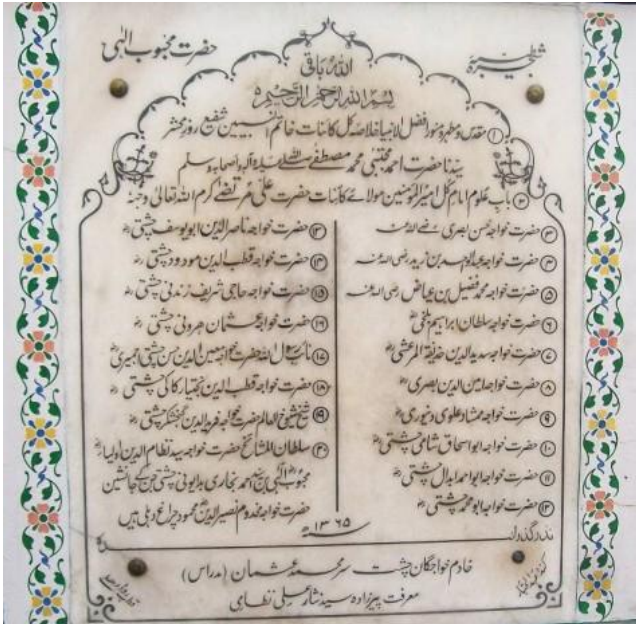 شجرہ طیبہ
حضرت محبوب الٰہی
اللہ باقی
بسم اللہ الرحمن الرحیم
① مقدس و مطہر و منور افضل الانبیا خلاصہ کل کائنات خاتم النبیین شفیع روز محشر
سیدنا حضرت احمد مجتبیٰ محمد مصطفے صلی اللہ علیہ وآلہ واصحابہ وسلم
② باب علوم امام کل امیر المومنین مولائے کائنات حضرت علی مرتضے اکرم اللہ تعالیٰ وجہہ
③ حضرت خواجہ حسن بصری رضی اللہ عنہ
④ حضرت خواجہ عبدالواحد بن زید رضی اللہ عنہ
⑤ حضرت خواجہ محمد فضیل بن عیاض رضی اللہ عنہ
⑥ حضرت خواجہ سلطان ابراہیم بلخی رح
⑦ حضرت خواجہ سدید الدین حذیفۃ المرعشی رح
⑧ حضرت خواجہ امین الدین بصری رح
⑨ حضرت خواجہ ممشاد علوی دنیوری رح
⑩ حضرت خواجہ ابو اسحاق شامی چشتی رح
⑪ حضرت خواجہ ابو احمد ابدال چشتی رح
⑫ حضرت خواجہ ابو محمد چشتی رح
⑬ حضرت خواجہ ناصر الدین ابو یوسف چشتی رح
⑭ حضرت خواجہ قطب الدین مودود چشتی رح
⑮ حضرت خواجہ حاجی شریف زندنی چشتی رح
⑯ حضرت خواجہ عثمان ہرونی چشتی رح
⑰ نائب رسول اللہ حضرت خواجہ معین الدین حسن چشتی اجمیری رح
⑱ حضرت خواجہ قطب الدین بختیار کاکی چشتی رح
⑲ شیخ شیوخ العالم حضرت خواجہ فرید الدین گنجشکر چشتی رح
⑳ سلطان المشائخ حضرت خواجہ سید نظام الدین اولیاء رح
محبوب الٰہی بن سید احمد بخاری بدایونی چشتی جن کے جانشین
حضرت خواجہ مخدوم نصیر الدین محمود چراغ دہلی ہیں
۱۳۶۵ھ
نذر گذرانہ
خادم خواجگان چشت سر محمد عثمان (مدراس)
معرفت پیرزادہ سید نثار علی نظامی